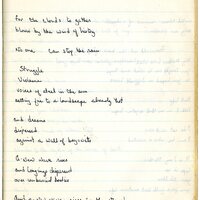 For the clouds to gather
blown by the wind of
No one can stop the rain
Struggle
Violence
voices of steel in the arm
setting fire to a landscape already that
and dreams
dispersed
against a wall of bayonets
A new wave rises
and longing dispersed
over unburied bodies